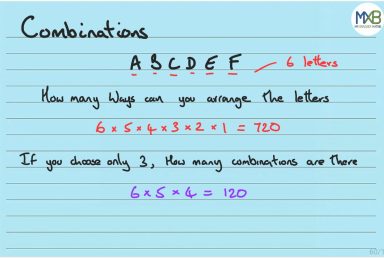 Combinations
MXB
A B C D E F
6 letters
How many Ways can you arrange The letters
6 × 5 × 4 × 3 × 2 × 1 = 720
If you choose only 3, How many combinations are there
6 × 5 × 4 = 120